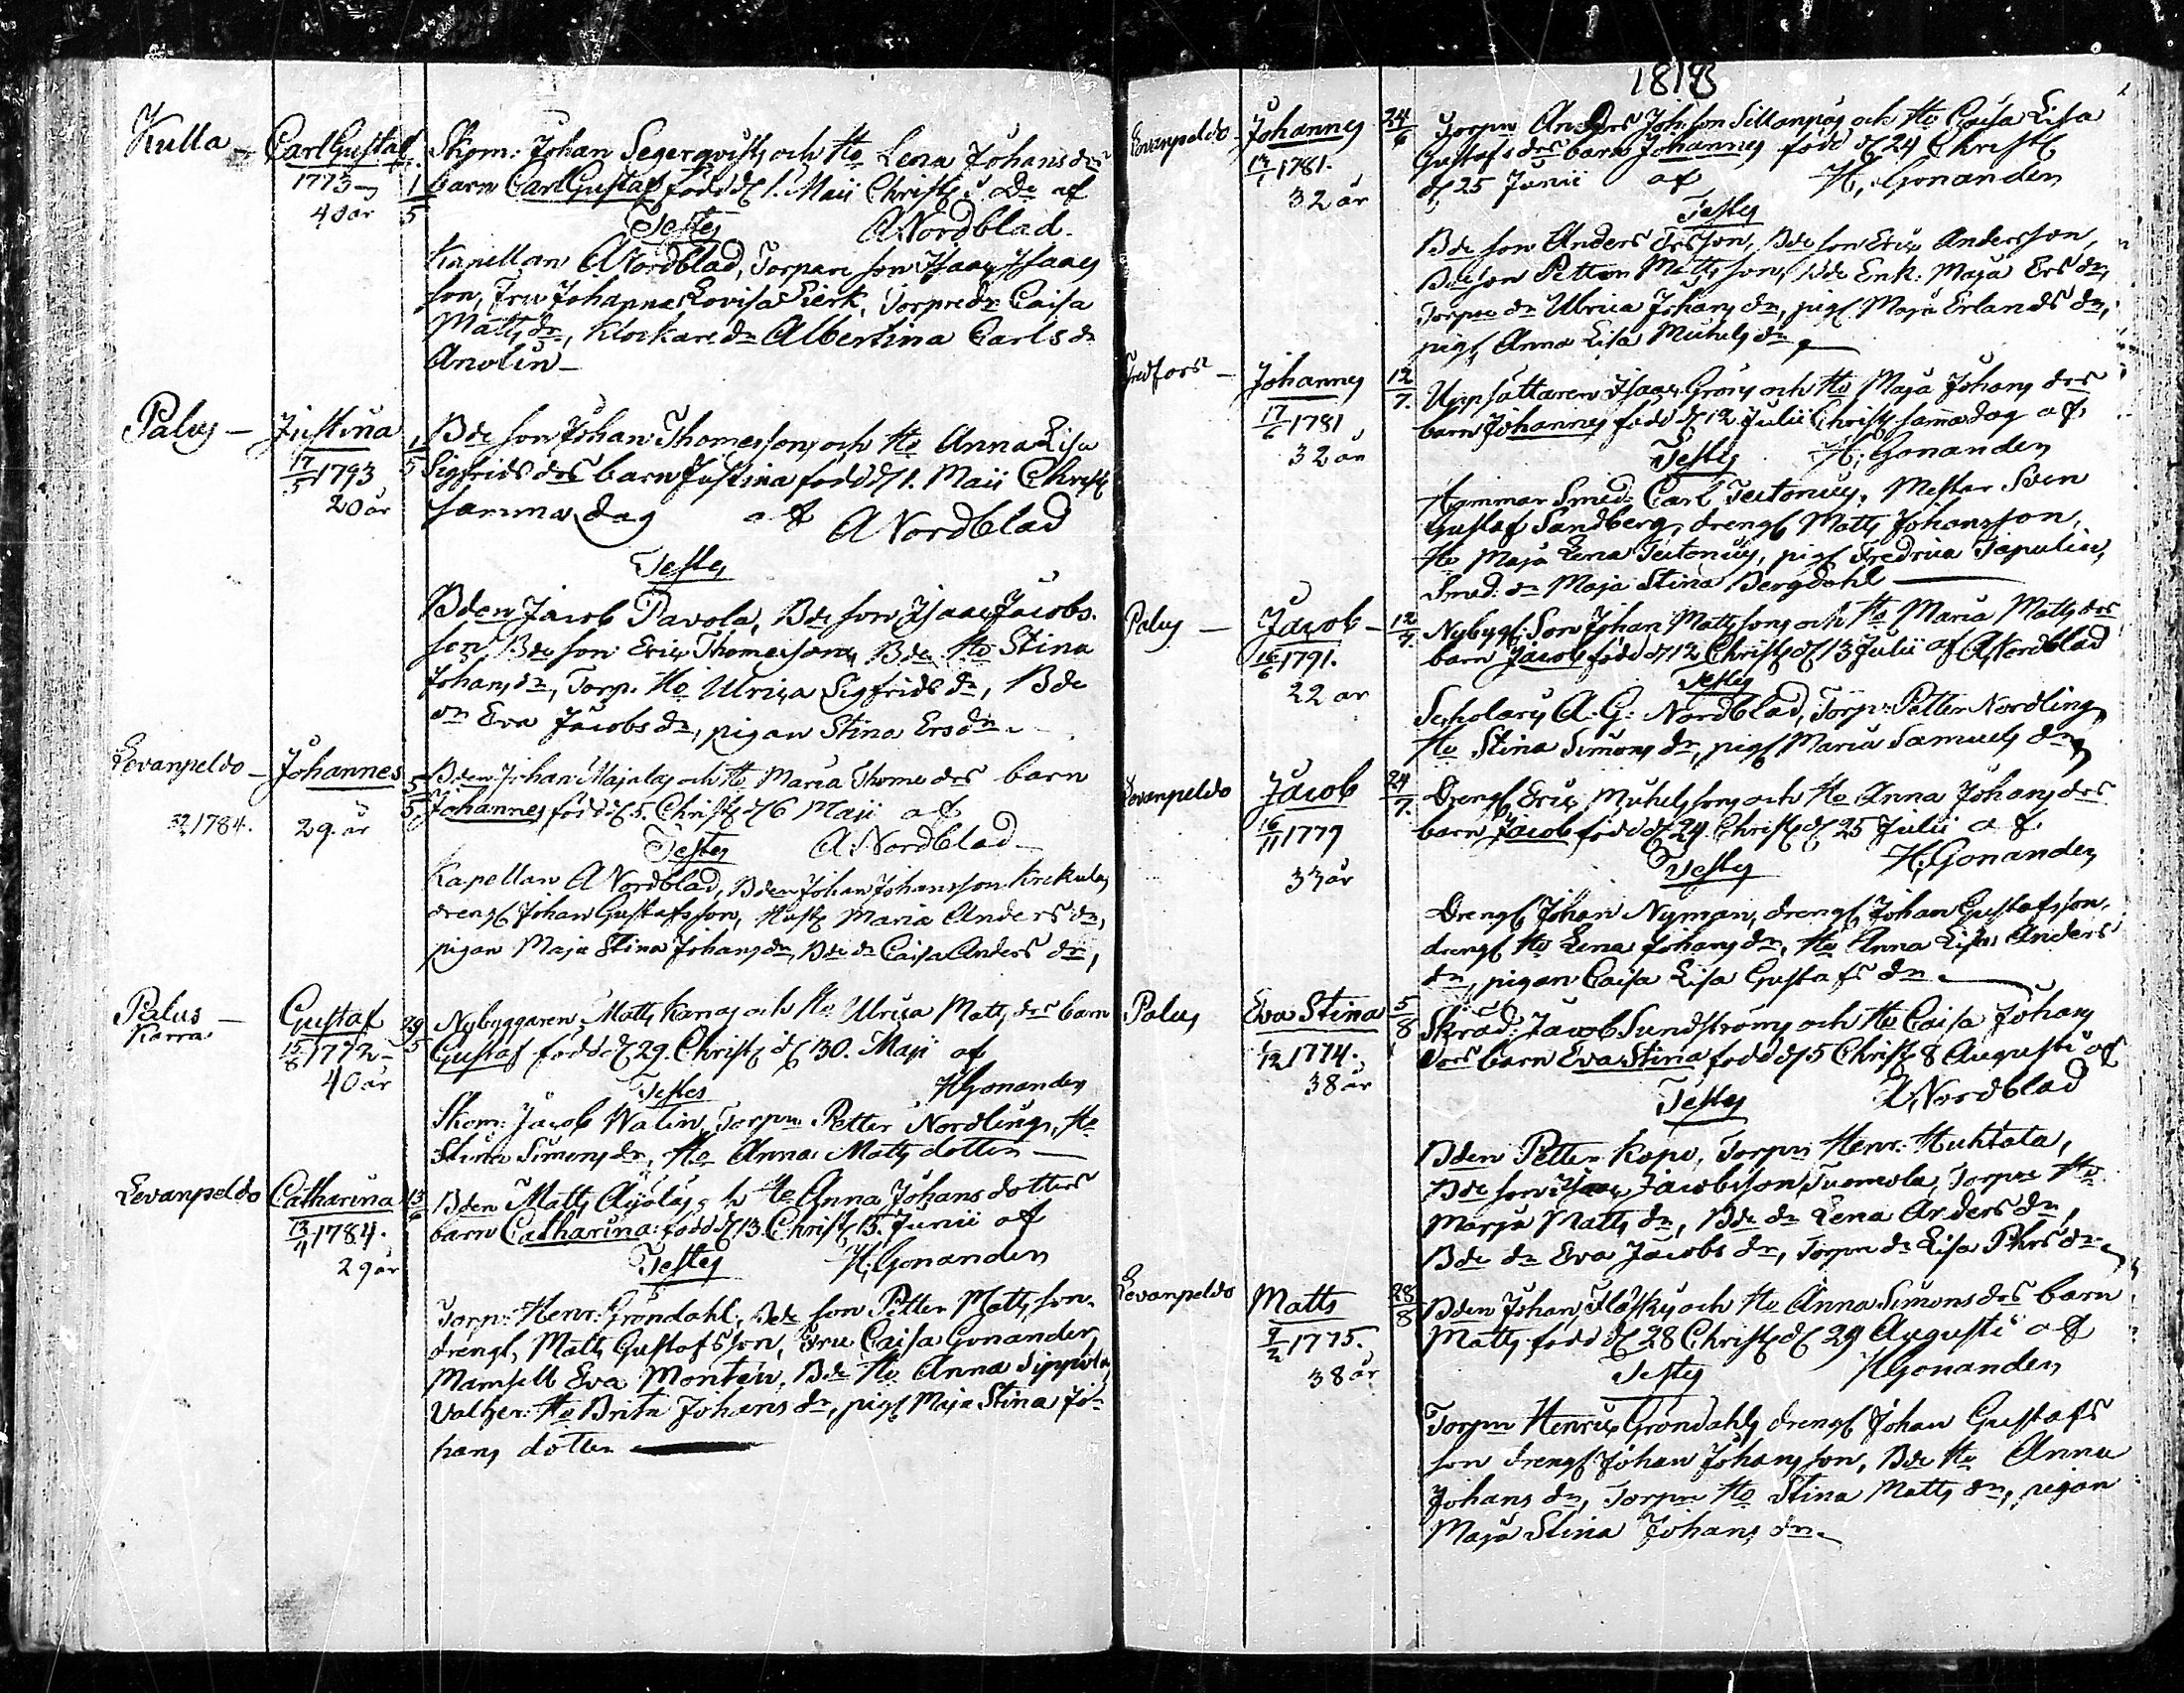 Kulla - Carl Gustaf
1773
40 år
1/5
Skom: Johan Segerqvists och Ho Lena Johans drs
barn Carl Gustaf född d 1. Maii Christ. af
Testes A Nordblad.
Kapellan A Nordblad, Torpare son Isaac Isaacs
son, Fru Johanna Lovisa Pierk, Torpre dr Caisa
Matts dr, Klockare dr Albertina Carls dr
Palus - Justina
17/5 1793
20 år
1/5
Bde son Johan Thomessons och Ho Anna Lisa
Sigfrids drs barn Justina född d 1. Maii Christ
samma dag af A Nordblad
Testes
Bden Jacob Pavola, Bde son Isaac Jacobs
son Bde son Eric Thomesson, Bde Ho Stina
Johans dr, Torp. Ho Ulrica Sigfrids dr, Bde
dr Eva Jacobs dr, pigan Stina Ers dr
Levanpeldo - Johannes
1784.
29 år
5/5
Bden Johan Majalas och Ho Maria Thome drs barn
Johannes född d 5. Christ d 6 Maii af
Testes A. Nordblad
Kapellan A Nordblad, Bden Johan Johansson Krekula,
dreng Johan Gustafsson, Hust Maria Anders dr,
pigan Maja Stina Johans dr, Bde dr Caisa Anders dr,
Palus - Gustaf
Karra
15/8 1772
40 år
29/5
Nybyggaren Matts Karras och Ho Ulrica Matts drs barn
Gustaf född d 29. Christ d 30. Maji af
Testes H Gonander
Skom: Jacob Walin, Torpn Petter Nordling, Ho
Stina Simons dr, Ho Anna Matts dotter
Levanpeldo Catharina
13/11 1784.
29 år
13/6
Bden Matts Äijäläs och Ho Anna Johans dotters
barn Catharina: född d 13. Christ 15. Junii af
Testes H; Gonander
Torp: Henr: Gröndahl, Bde son Petter Matts son
drengl Matts Gustafsson, Fru Caisa Gonander,
Mamsell Eva Montén, Bde Ho Anna Sippola,
Ho Brita Johans dr, pig Maja Stina Jo-
hans dotter
1813
Levanpeldo - Johannes
1781.
32 år
24/6
Torpn Anders Johsson Sillanpääs och Ho Caisa Lisa
Gustafs drs barn Johannes född d 24 Christ
d 25 Junii af H, Gonander
Testes
Bde son Anders Ersson, Bde son Eric Andersson,
Bde son Petter Matts son, Bde Enk: Maja Ers dr,
Torpn dr Ulrica Johans dr, pig Maja Erlands dr,
pig Anna Lisa Michels dr
Johannes
17/6 1781
32 år
12/7.
Uppsättaren Isaac Gröns och Ho Maja Johans drs
barn Johannes född d 12 Julii Christ samma dag af
Testes H; Gonander
Hammar Smed: Carl Teitonius, Mester Sven
Gustaf Sandberg, dreng Matts Johansson,
Ho Maja Lena Teitonius, pig Fredrica Tapulin,
Smed: dr Maja Stina Bergdahl
Palus - Jacob
16/6 1791.
22 år
12/7.
Nybyg: Son Johan Mattssons och Ho Maria Matts drs
barn Jacob född d 12 Christ d 13 Julii af A Nordblad
Testes
Scholaris A: G: Nordblad, Torp: Petter Nordling
Ho Stina Simons dr, pig Maria Samuels dr
Levanpeldo Jacob
16/11 1779
33 år
24/7.
Dreng Eric Michelssons och Ho Anna Johans drs
barn Jacob född d 24 Christ d 25 Julii af
Testes H; Gonander
Dreng Johan Nyman, dreng Johan Gustafsson,
dreng Ho Lena Johans dr, Ho Anna Lisa Anders
dr, pigan Caisa Lisa Gustafs dr
Palus Eva Stina
1774.
38 år
5/8
Skräd: Jacob Sundströms och Ho Caisa Johans
drs barn Eva Stina född d 5 Christ 8 Augusti af
Testes A Nordblad
Bden Petter Kopo, Torpn Henr: Huhtala,
Bde son Isaac Jacobsson Tuomola, Torpre Ho
Marja Matts dr, Bde dr Lena Anders dr,
Bde dr Eva Jacobs dr, Torpre dr Lisa Phrs dr
Levanpeldo Matts
9/2 1775.
38 år
28/8
Bden Johan Flaskus och Ho Anna Simons drs barn
Matts född d 28 Christ d 29 Augusti af
Testes H Gonander
Torpn Henric Gröndahl, dreng Johan Gustafs
son dreng Johan Johansson, Bde Ho Anna
Johans dr, Torpre Ho Stina Matts dr, pigan
Maja Stina Johans dr